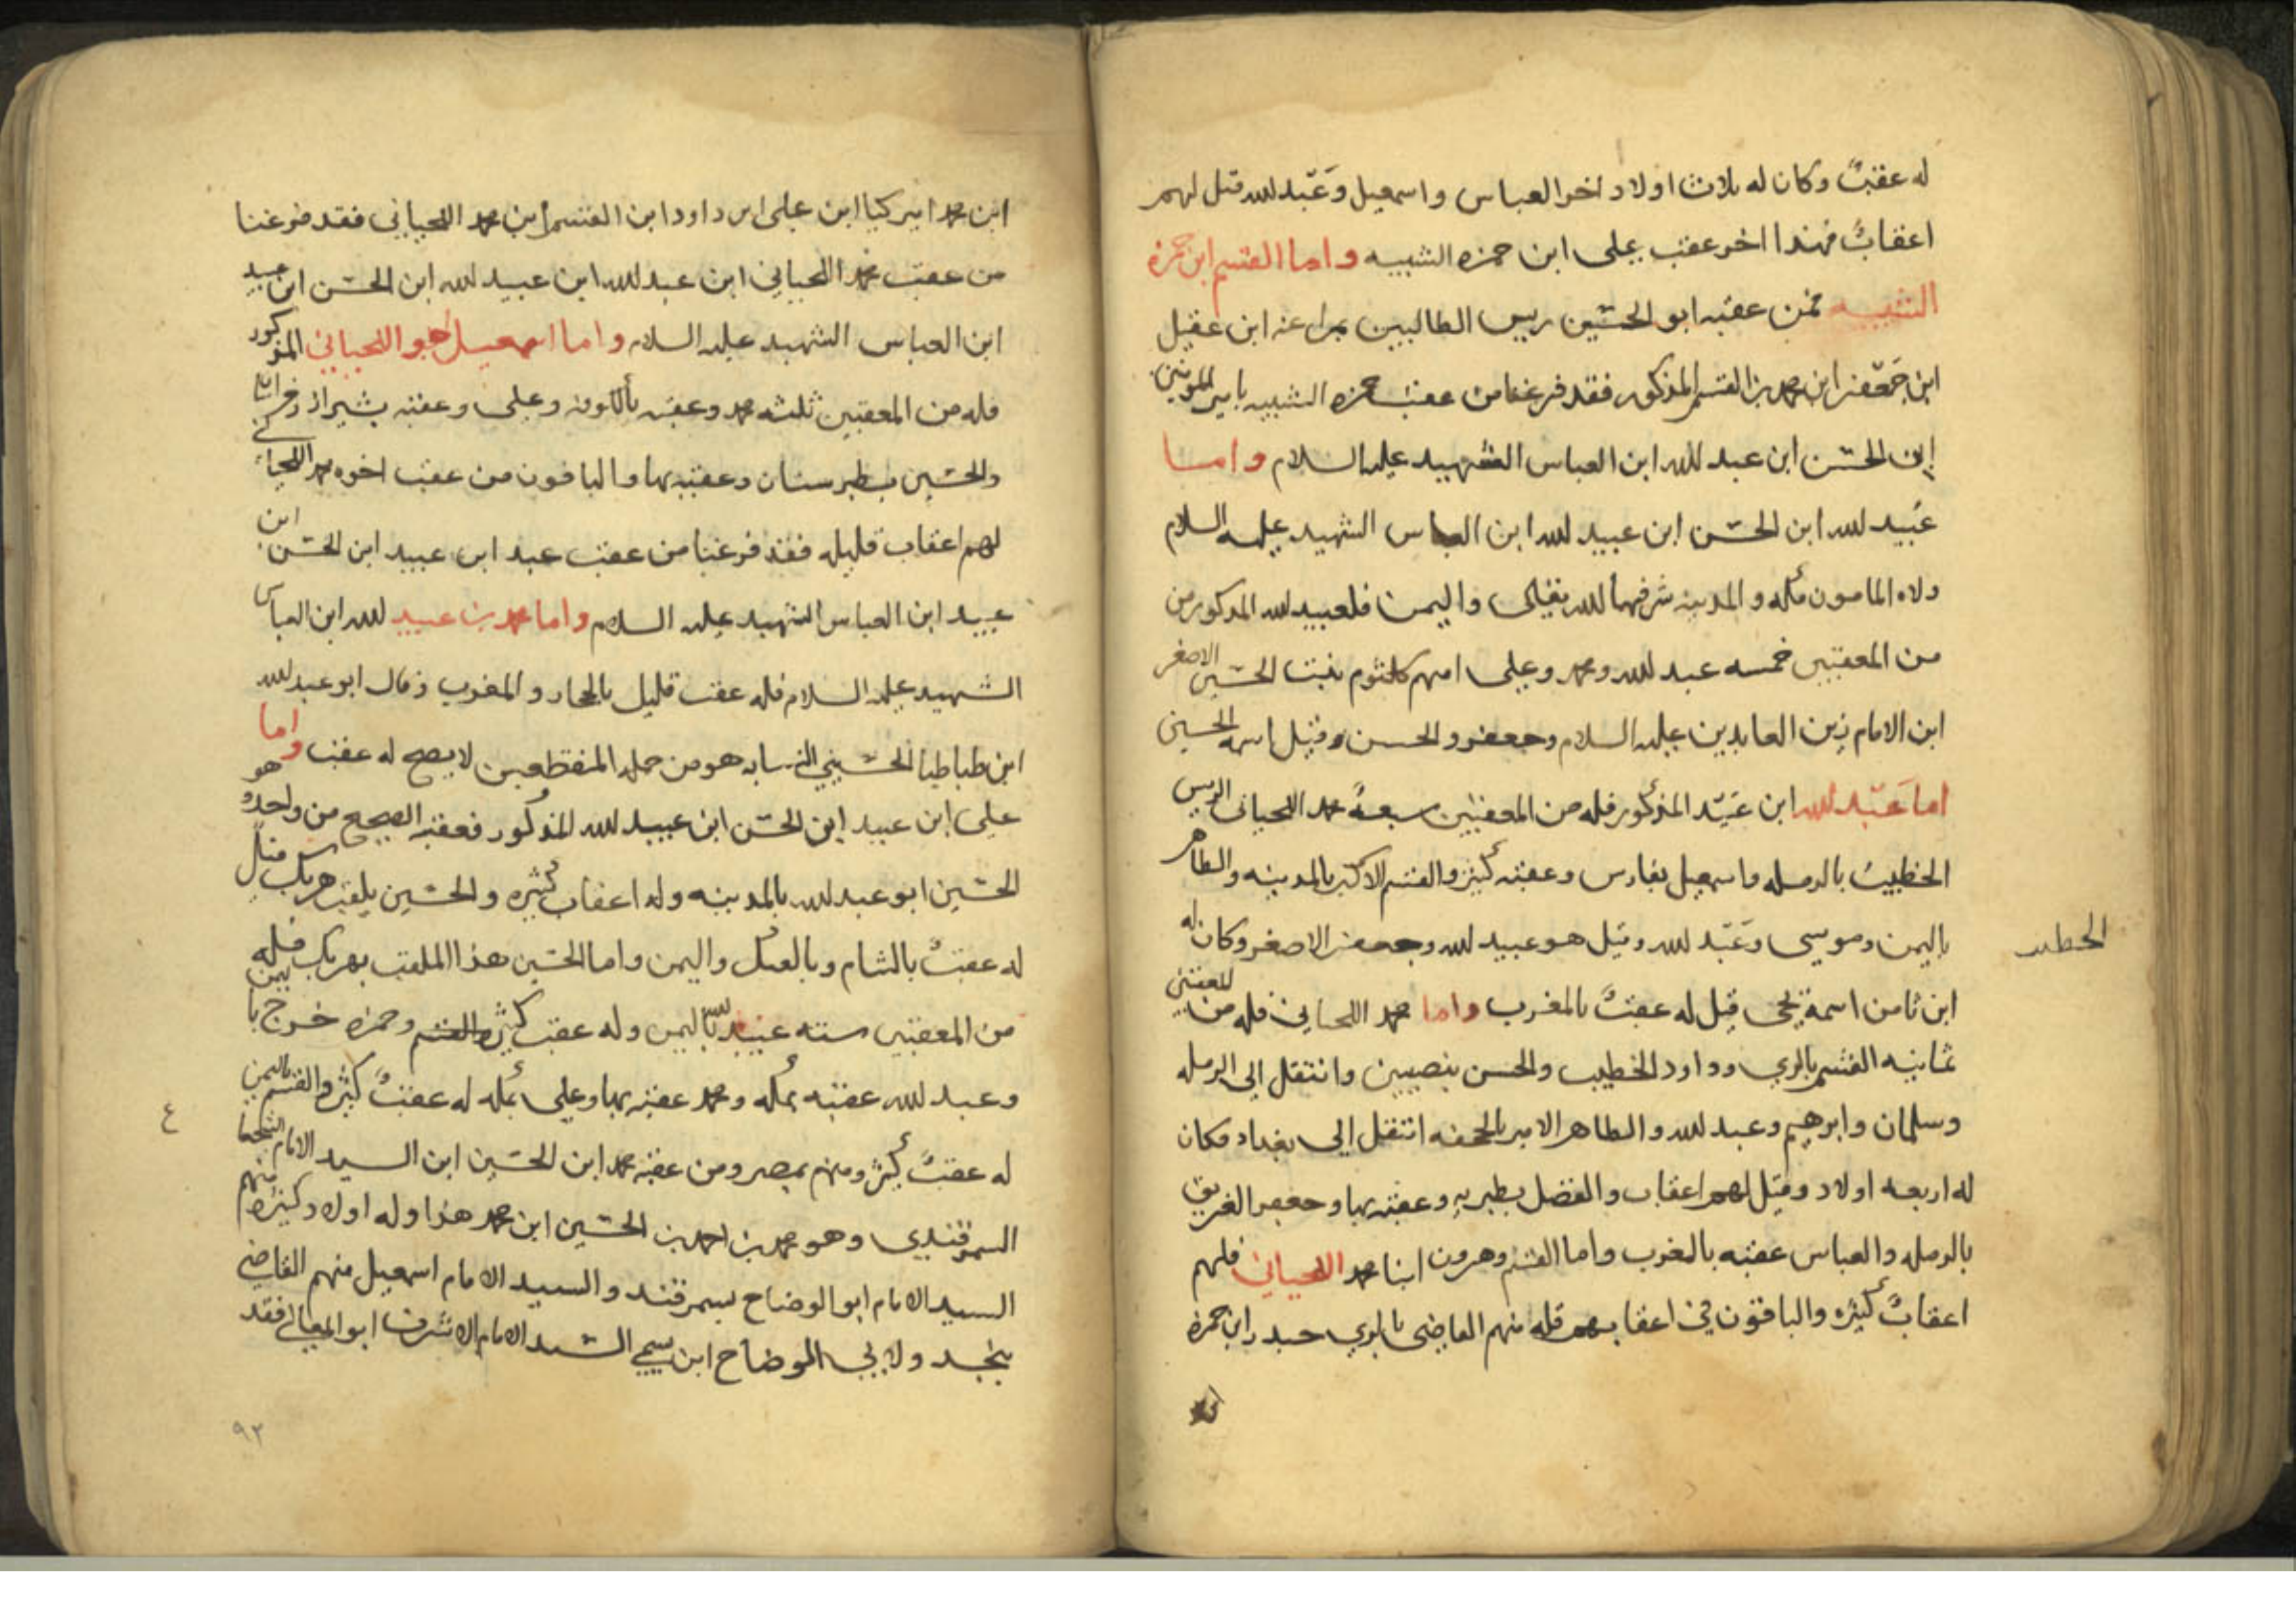 له عقبٌ وكان له ثلاث اولاد اخر العباس واسمعيل وعَبّد لله قيل لهم
اعقابٌ فهذا اخر عقب على ابن حمزه الشبيه واما القسم ابن حمزه
الشبيه فمن عقبه ابو الحسين ريس الطالبيين ابن عقيل
ابن جَعّفر ابن محمد بن القسم المذكور فقد فرغنا من عقب حمزه الشبيه بامير المومنين
ابن الحسن ابن عبد لله ابن العباس الشهيد عليه السلام واما
عُبيد لله ابن الحسن ابن عبيد لله ابن العباس الشهيد عليه السلام
ولاه المامون مكه والمدينه شرفهما لله تعالى واليمن فلعبيد لله المذكور من
من المعقبين خمسه عبد لله ومحمد وعلى امهم كلثوم بنت الحسين الاصغر
ابن الامام زين العابدين عليه السلام وجعفر والحسن وقيل اسمه الحسين
اما عَبّد لله ابن عُبَيّد المذكور فله من المعقبين سبعةٌ محمد اللحيانى الريس
الخطيب بالرمله واسمعيل بفارس وعقبه كثير والقسم الاكبر بالمدينه والطاهر
باليمن وموسى وعَبّد لله وقيل هو عبيد لله وجعفر الاصغر وكان له
الخطيب
ابن ثامن اسمه يحى قيل له عقبٌ بالمغرب واما محمد اللحيانى فله من المعقبين
ثمانيه القسم بالري وداود الخطيب والحسن بنصيبين وانتقل الى الرمله
وسليمان وابرهيم وعبد لله والطاهر الامير بالجحفه انتقل الى بغداد فكان
له اربعه اولاد وقيل لهم اعقاب والفضل بطبريه وعقبه بها وجعفر الغريق
بالرمله والعباس عقبه بالمغرب واما القسم وهرون ابنا محمد اللحياني فلهم
اعقابٌ كثيره والباقون في اعقابهم قله منهم القاضى بالري حيدر ابن حمزه
ابن محمد اميركيا ابن على ابن داود ابن القسم ابن محمد اللحيانى فقد فرغنا
من عقب محمد اللحياني ابن عبد لله ابن عبيد لله ابن الحسن ابن عبيد
ابن العباس الشهيد عليه السلام واما اسمعيل اخو اللحيانى المذكور
فله من المعقبين ثلثه محمد وعقبه بالكوفه وعلى وعقبه بشيراز
والحسين بطبرستان وعقبه بها والباقون من عقب اخوه محمد
لهم اعقاب قليله فقد فرغنا من عقب عبد ابن عبيد ابن الحسن ابن
عبيد ابن العباس الشهيد عليه السلام واما محمد بن عبيد لله ابن العباس
الشهيد عليه السلام فله عقب قليل بالحجاز والمغرب وقال ابو عبد لله
ابن طباطبا الحسيني النسابه هو من جمله المنقطعين لا يصح له عقب واما
على ابن عبيد ابن الحسن ابن عبيد لله المذكور فعقبه الصحيح من واحد وهو
الحسين ابو عبد لله بالمدينه وله اعقاب كثيره والحسين يلقب هريك قيل
له عقبٌ بالشام وبالعسكر واليمن واما الحسين هذا الملقب بهريك فله
من المعقبين سته عبيد لله باليمن وله عقب كثير والقسم وحمزه خرج باليمن
وعبد لله عقبه بمكه ومحمد عقبه بها وعلى بمكه له عقبٌ كثير والقسم باليمن
٤
له عقبٌ كثير ومنهم بمصر ومن عقبه محمد ابن الحسين ابن السيد الامام
السمرقندي وهو محمد بن احمد بن الحسين ابن محمد هذا وله اولاد كثيره منهم
السيد الامام ابو الوضاح بسمرقند والسيد الامام اسمعيل منهم القاضي
ولابي الوضاح ابن سمي السيد الامام الاشرف ابو المعالى فقد
٩٢